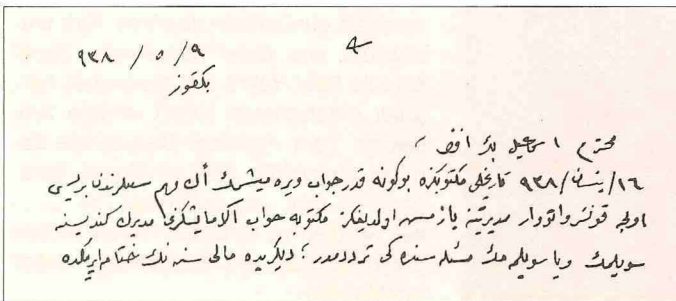 ٩/ ٥ / ٩٣٨
بكقوز
محترم اسماعيل بك افندى ،
١٦/نيسان/٩٣٨ تاريخلى مكتوبكزه بوكونه قدر جواب ويره ميشمك اڭ مهم سببلرندن بريسى
اولجه قونسرواتووار مديريتنه يازمش اولديغكز مكتوبه جواب آلامايشكزى مديرك كنديسنه
سويلمك ويا سويلمه مك مسئله سنده كى ترددمدر ؛ ديكريده مالى سنه نك ختامه ايرمكده